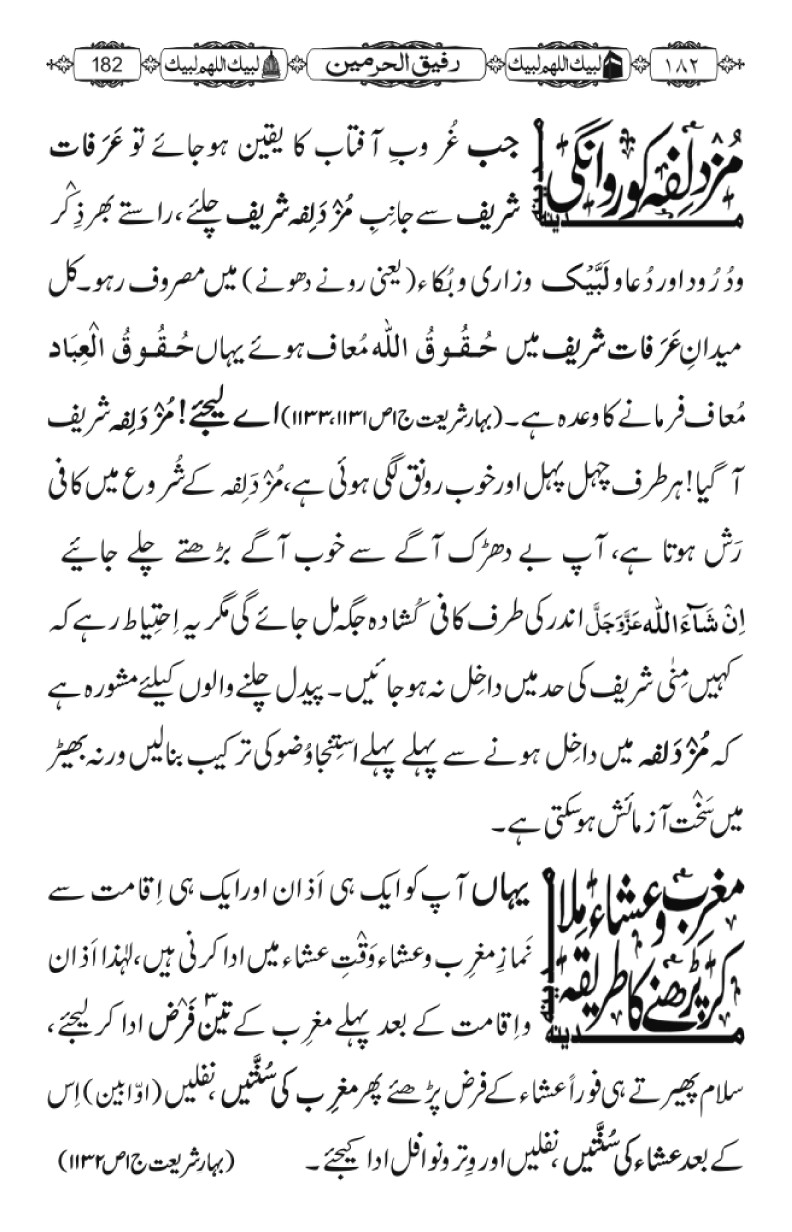 ۱۸۲ لبيك اللهم لبيك رفیق الحرمین لبيك اللهم لبيك 182
مُزدلِفہ کو روانگی
جب غُروبِ آفتاب کا یقین ہوجائے تو عَرَفات
شریف سے جانِبِ مُزْدَلِفہ شریف چلئے، راستے بھر ذِکْر
ودُرُود اور دُعا و لَبَّیْک وزاری و بُکاء (یعنی رونے دھونے) میں مصروف رہو۔ کل
میدانِ عَرَفات شریف میں حُقُوقُ اللہ مُعاف ہوئے یہاں حُقُوقُ الْعِبَاد
مُعاف فرمانے کا وعدہ ہے۔ (بہارشریعت ج۱ص۱۱۳۱،۱۱۳۳) اے لیجئے! مُزْدَلِفہ شریف
آ گیا! ہر طرف چہل پہل اور خوب رونق لگی ہوئی ہے، مُزْدَلِفہ کے شُروع میں کافی
رَش ہوتا ہے، آپ بے دھڑک آگے سے خوب آگے بڑھتے چلے جائیے
اِنْ شَآءَاللّٰہ عَزَّوَجَلَّ اندر کی طرف کافی کُشادہ جگہ مل جائے گی مگر یہ اِحتِیاط رہے کہ
کہیں مِنٰی شریف کی حد میں داخِل نہ ہوجائیں۔ پیدل چلنے والوں کیلئے مشورہ ہے
کہ مُزْدَلفہ میں داخِل ہونے سے پہلے پہلے استِنجا وُضو کی ترکیب بنالیں ورنہ بھیڑ
میں سَخْت آزمائش ہوسکتی ہے۔
مغرِب و عشاء مِلا
کر پڑھنے کا طریقہ
یہاں آپ کو ایک ہی اَذان اور ایک ہی اِقامت سے
نَمازِ مغرِب و عشاء وَقْتِ عشاء میں ادا کرنی ہیں، لہٰذا اَذان
و اِقامت کے بعد پہلے مغرِب کے تین۳ فَرْض ادا کرلیجئے،
سلام پھیرتے ہی فوراً عشاء کے فرض پڑھئے پھر مغرِب کی سُنَّتیں، نفلیں (اوّابین) اِس
کے بعد عشاء کی سُنَّتیں، نفلیں اور وِتر و نوافل ادا کیجئے۔ (بہارشریعت ج۱ص۱۱۳۲)